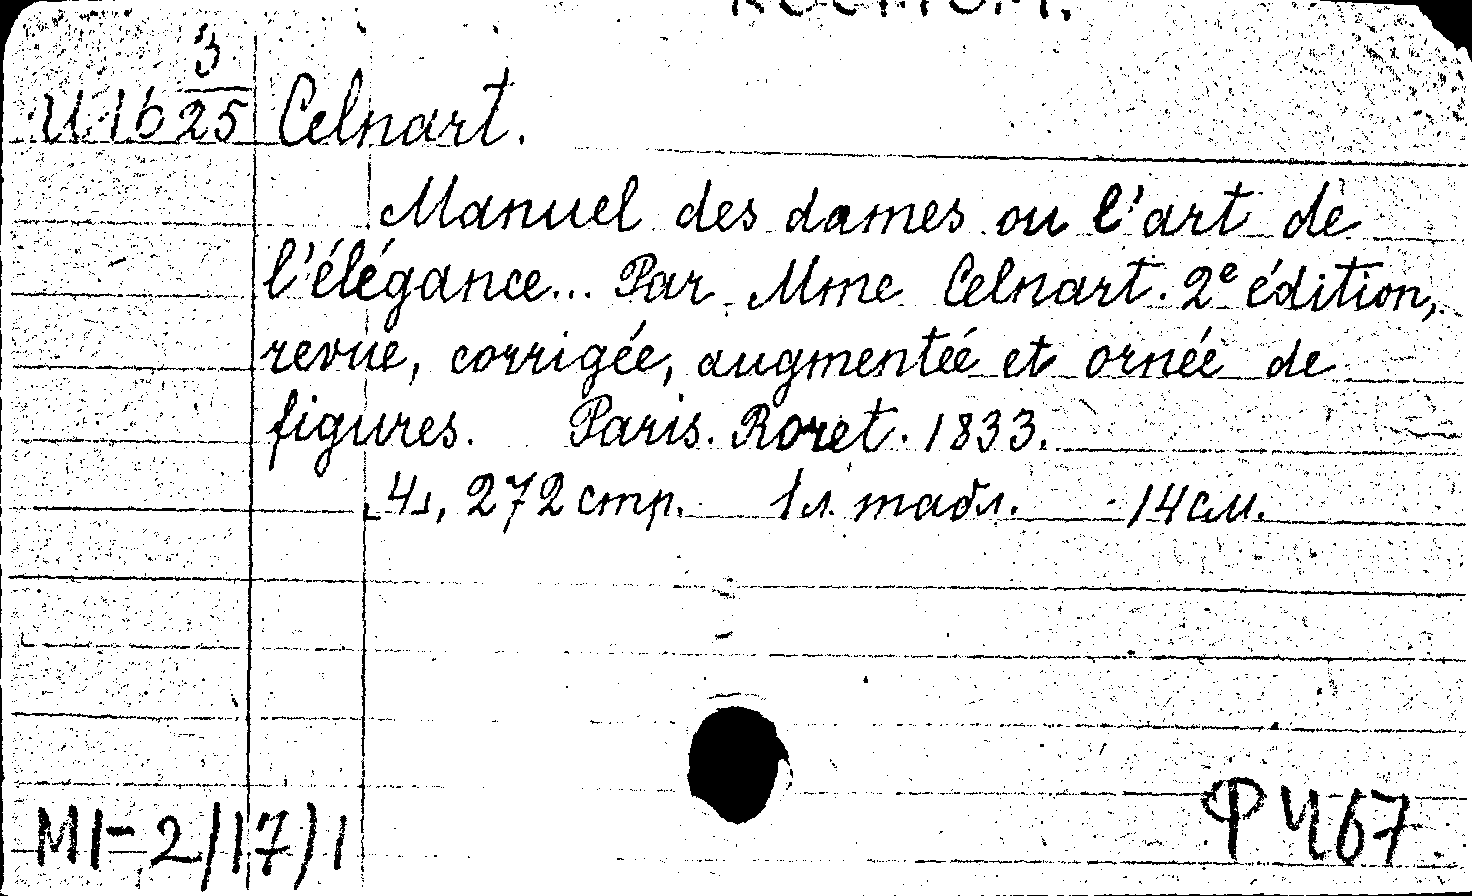 3
И 16 25 Celnart.
Manuel des dames ou l'art de
l'élégance... Par Mme Celnart. 2e édition,
revue, corrigée, augmenteé et ornée de
figures. Paris. Roret. 1833.
[4], 272 стр. 1 л. табл. 14 см.
МІ-2/17/1
Ф Ч 67